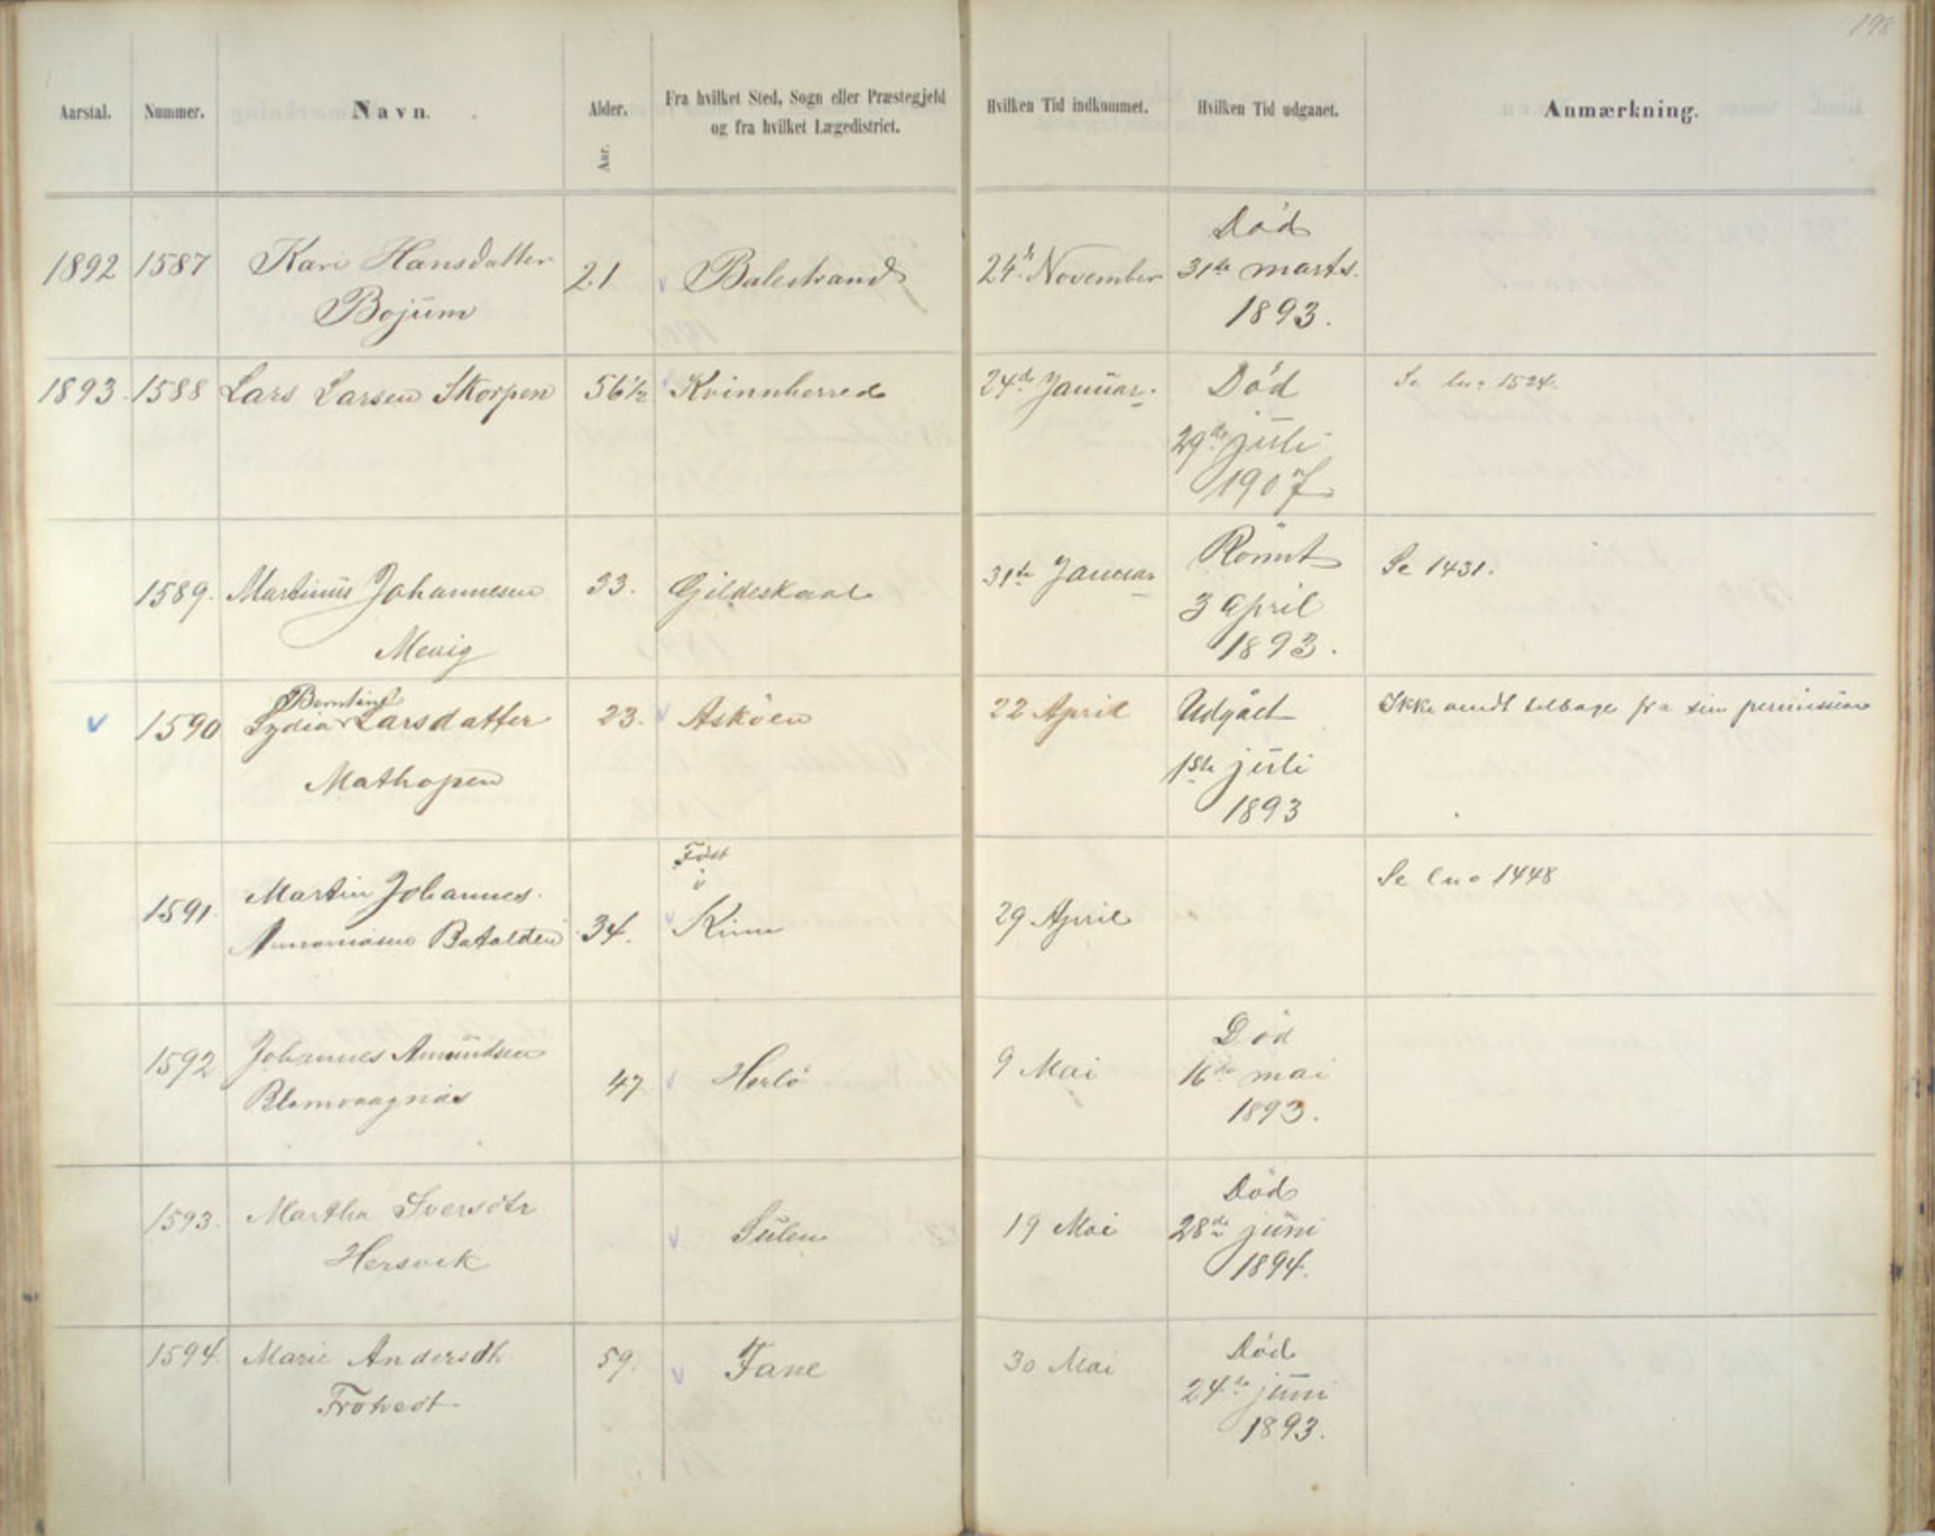 198
Aarstal. Nummer. Navn. Alder. Aar. Fra hvilket Sted, Sogn eller Præstegjeld og fra hvilket Lægedistrict. Hvilken Tid indkommet. Hvilken Tid udgaaet. Anmærkning.
1892 1587 Kari Hansdatter 21 Balestrand 24 November Død
Bojum 31te marts.
1893.
1893 1588 Lars Larsen Skorpen 56½ Kvinnherred 24de Januar. Død Se lno 1524.
29de juli
1907
1589. Martinus Johannesen 33. Gildeskaal 31te Januar Römt Se 1431.
Mevig 3 April
1893.
Berntine
1590 Lydia Larsdatter 23. Asköen 22 April Udgået Ikke vendt tilbage fra sin permission
Mathopen 1ste juli
1893
Født
i
1591. Martin Johannes 34. Kinn 29 April Se lno 1448
Batalden
1592 Johannes Amundsen 47 Herlö 9 Mai Død
Blomvaagnæs 16de mai
1893.
1593. Martha Iversdtr Sulen 19 Mai Død
Hersvik 28de juni
1894.
1594. Marie Andersdtr 59. Fane 30 Mai Død
24de juni
1893.